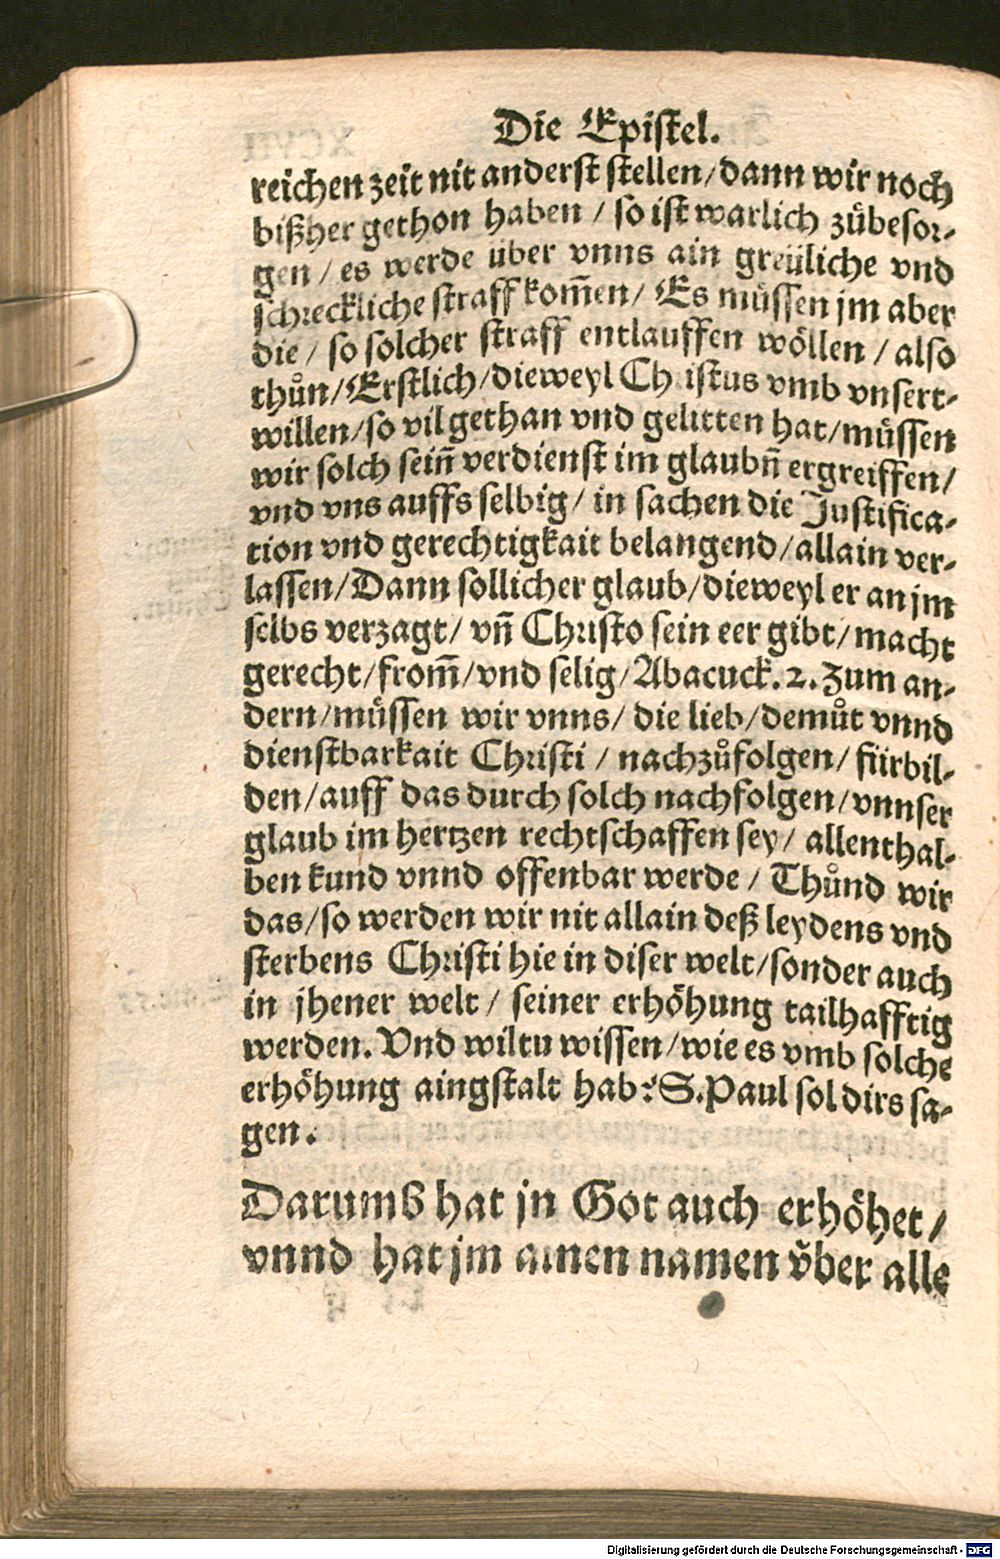 Die Epistel.
reichen zeit nit anderst stellen/dann wir noch
bißher gethon haben / so ist warlich zůbesor-
gen / es werde über vnns ain greüliche vnd
schreckliche straff kom̃en/ Es müssen jm aber
die / so solcher straff entlauffen wöllen / also
thůn/Erstlich/dieweyl Christus vmb vnsert-
willen/so vil gethan vnd gelitten hat/müssen
wir solch sein̄ verdienst im glaubn̄ ergreiffen/
vnd vns auffs selbig/ in sachen die Justifica-
tion vnd gerechtigkait belangend/allain ver-
lassen/Dann sollicher glaub/dieweyl er an jm
selbs verzagt/ vn̄ Christo sein eer gibt/macht
gerecht/from̃/vnd selig/Abacuck.2.Zum an-
dern/müssen wir vnns/ die lieb/demůt vnnd
dienstbarkait Christi / nachzůfolgen/ fürbil-
den/auff das durch solch nachfolgen/vnnser
glaub im hertzen rechtschaffen sey/ allenthal-
ben kund vnnd offenbar werde / Thůnd wir
das/so werden wir nit allain deß leydens vnd
sterbens Christi hie in diser welt/sonder auch
in jhener welt/ seiner erhöhung tailhafftig
werden. Vnd wiltu wissen/wie es vmb solche
erhöhung aingstalt hab? S.Paul sol dirs sa-
gen.
Darumb hat jn Got auch erhöhet/
vnnd hat jm ainen namen v̈ber alle
Digitalisierung gefördert durch die Deutsche Forschungsgemeinschaft - DFG